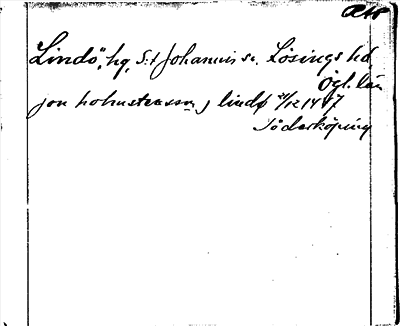 "Lindö", hg, S:t Johannis sn. Lösings hd,
Ögl. län
jon holmstensson j lindø 21/12 1447
Söderköping